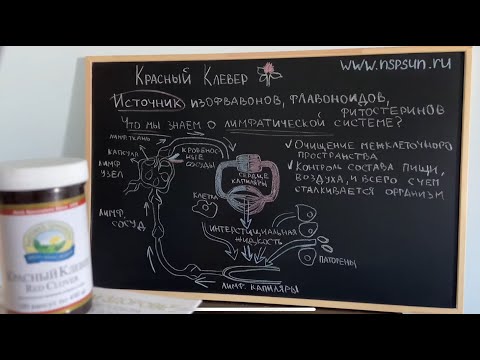 www.nspsun.ru
Красный Клевер
Источник изофвавонов, флавоноидов,
фитостеринов
Что мы знаем о лимфатической системе?
лимф. ткань
капсула
лимф.
узел
кровенос-
ные
сосуды
сердце
капиляры
клетка
• Очищение межклеточного
пространства
• Контроль состава пищи,
воздуха, и всего с чем
сталкивается организм
лимф.
сосуд
интерстициальная
жидкость
патогены
лимф. капиляры
Красный Клевер
Red Clover